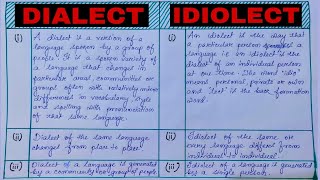 DIALECT
(i) A dialect is a version of a
language spoken by a group of
people. It is a spoken variety of
a language that changed of
particular area, communities or
groups often with relatively minor
differences in vocabulary, style
and spelling with pronunciation
of that same language.
(ii) Dialect of the same language
changed from place to place.
(iii) Dialect of a language is generated
by a community or group of people.
IDIOLECT
(i) An idiolect is the way that
a particular person speaks a
language i.e. an idiolect is the
dialect of an individual person
at one time. The word "idio"
means personal, private or own
and "lect" is the back formation
word.
(ii) Idiolect of the same or
any language different from
individual to individual.
(iii) Idiolect of a language is generated
by a single person.